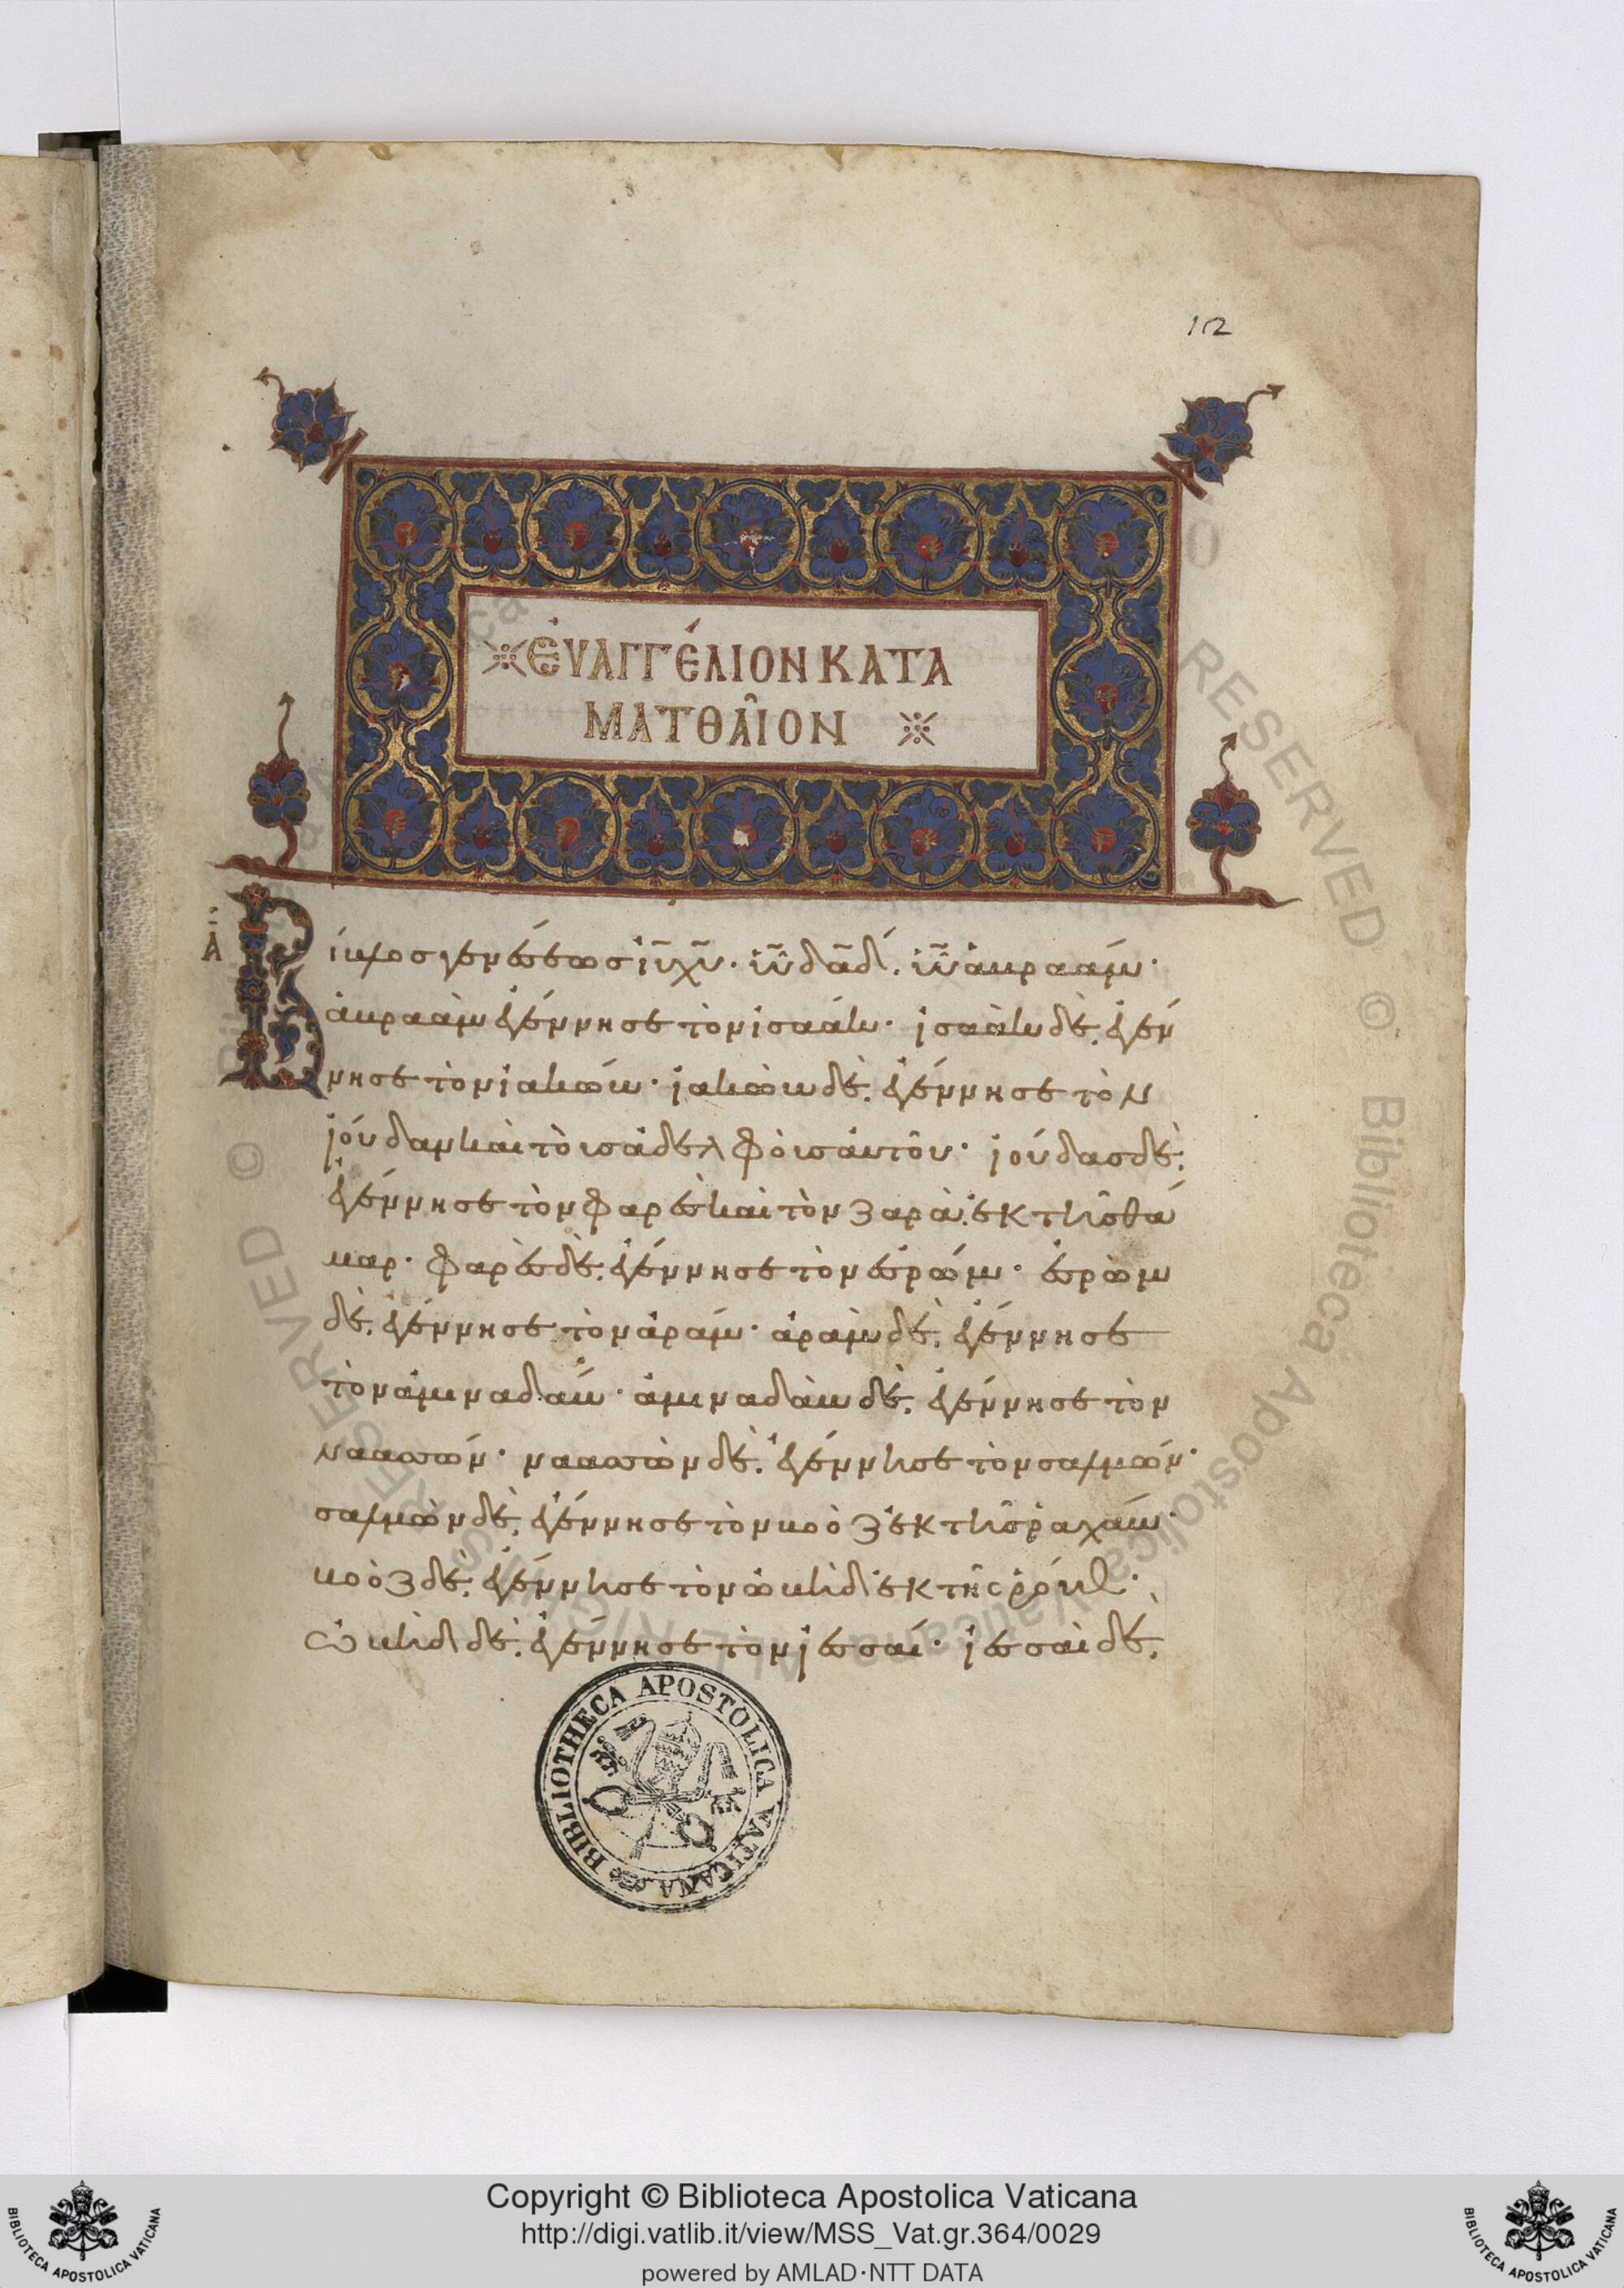 12
※ ΕὐΑΓΓΈΛΙΟΝ ΚΑΤΑ
ΜΑΤΘΑῖΟΝ ※
Α
Βίβλος γενέσεως ἰῡ χῡ· ϋῦ δᾱδ́. ϋῦ ἀβραάμ·
ἀβραὰμ ἐγέννησε τὸν ἰσαάκ· ἰσαὰκ δὲ, ἐγέν
νησε τὸν ἰακώβ· ἰακὼβ δὲ, ἐγέννησε τὸν
ἰούδαν καὶ τοὺς ἀδελφοὺς αὐτοῦ· ἰούδας δὲ,
ἐγέννησε τὸν φαρὲς καὶ τὸν ζαρὰ, ἐκ τῆς θά
μαρ· φαρὲς δὲ, ἐγέννησε τὸν ἐσρώμ· ἐσρὼμ
δὲ, ἐγέννησε τὸν ἀράμ· ἀρὰμ δὲ, ἐγέννησε
τὸν ἀμιναδάβ· ἀμιναδὰβ δὲ, ἐγέννησε τὸν
ναασσών· ναασσὼν δὲ, ἐγέννησε τὸν σαλμών·
σαλμὼν δὲ, ἐγέννησε τὸν βοὸζ ἐκ τῆς ῥαχάβ·
βοὸζ δὲ, ἐγέννησε τὸν ὠβὴδ ἐκ τῆς ῥούθ·
ὠβὴδ δὲ, ἐγέννησε τὸν ἰεσσαί· ἰεσσαὶ δὲ,
BIBLIOTHECA APOSTOLICA VATICANA
RESERVED © Biblioteca Apostolica Vaticana
Copyright © Biblioteca Apostolica Vaticana
http://digi.vatlib.it/view/MSS_Vat.gr.364/0029
powered by AMLAD·NTT DATA
BIBLIOTECA APOSTOLICA VATICANA
BIBLIOTECA APOSTOLICA VATICANA